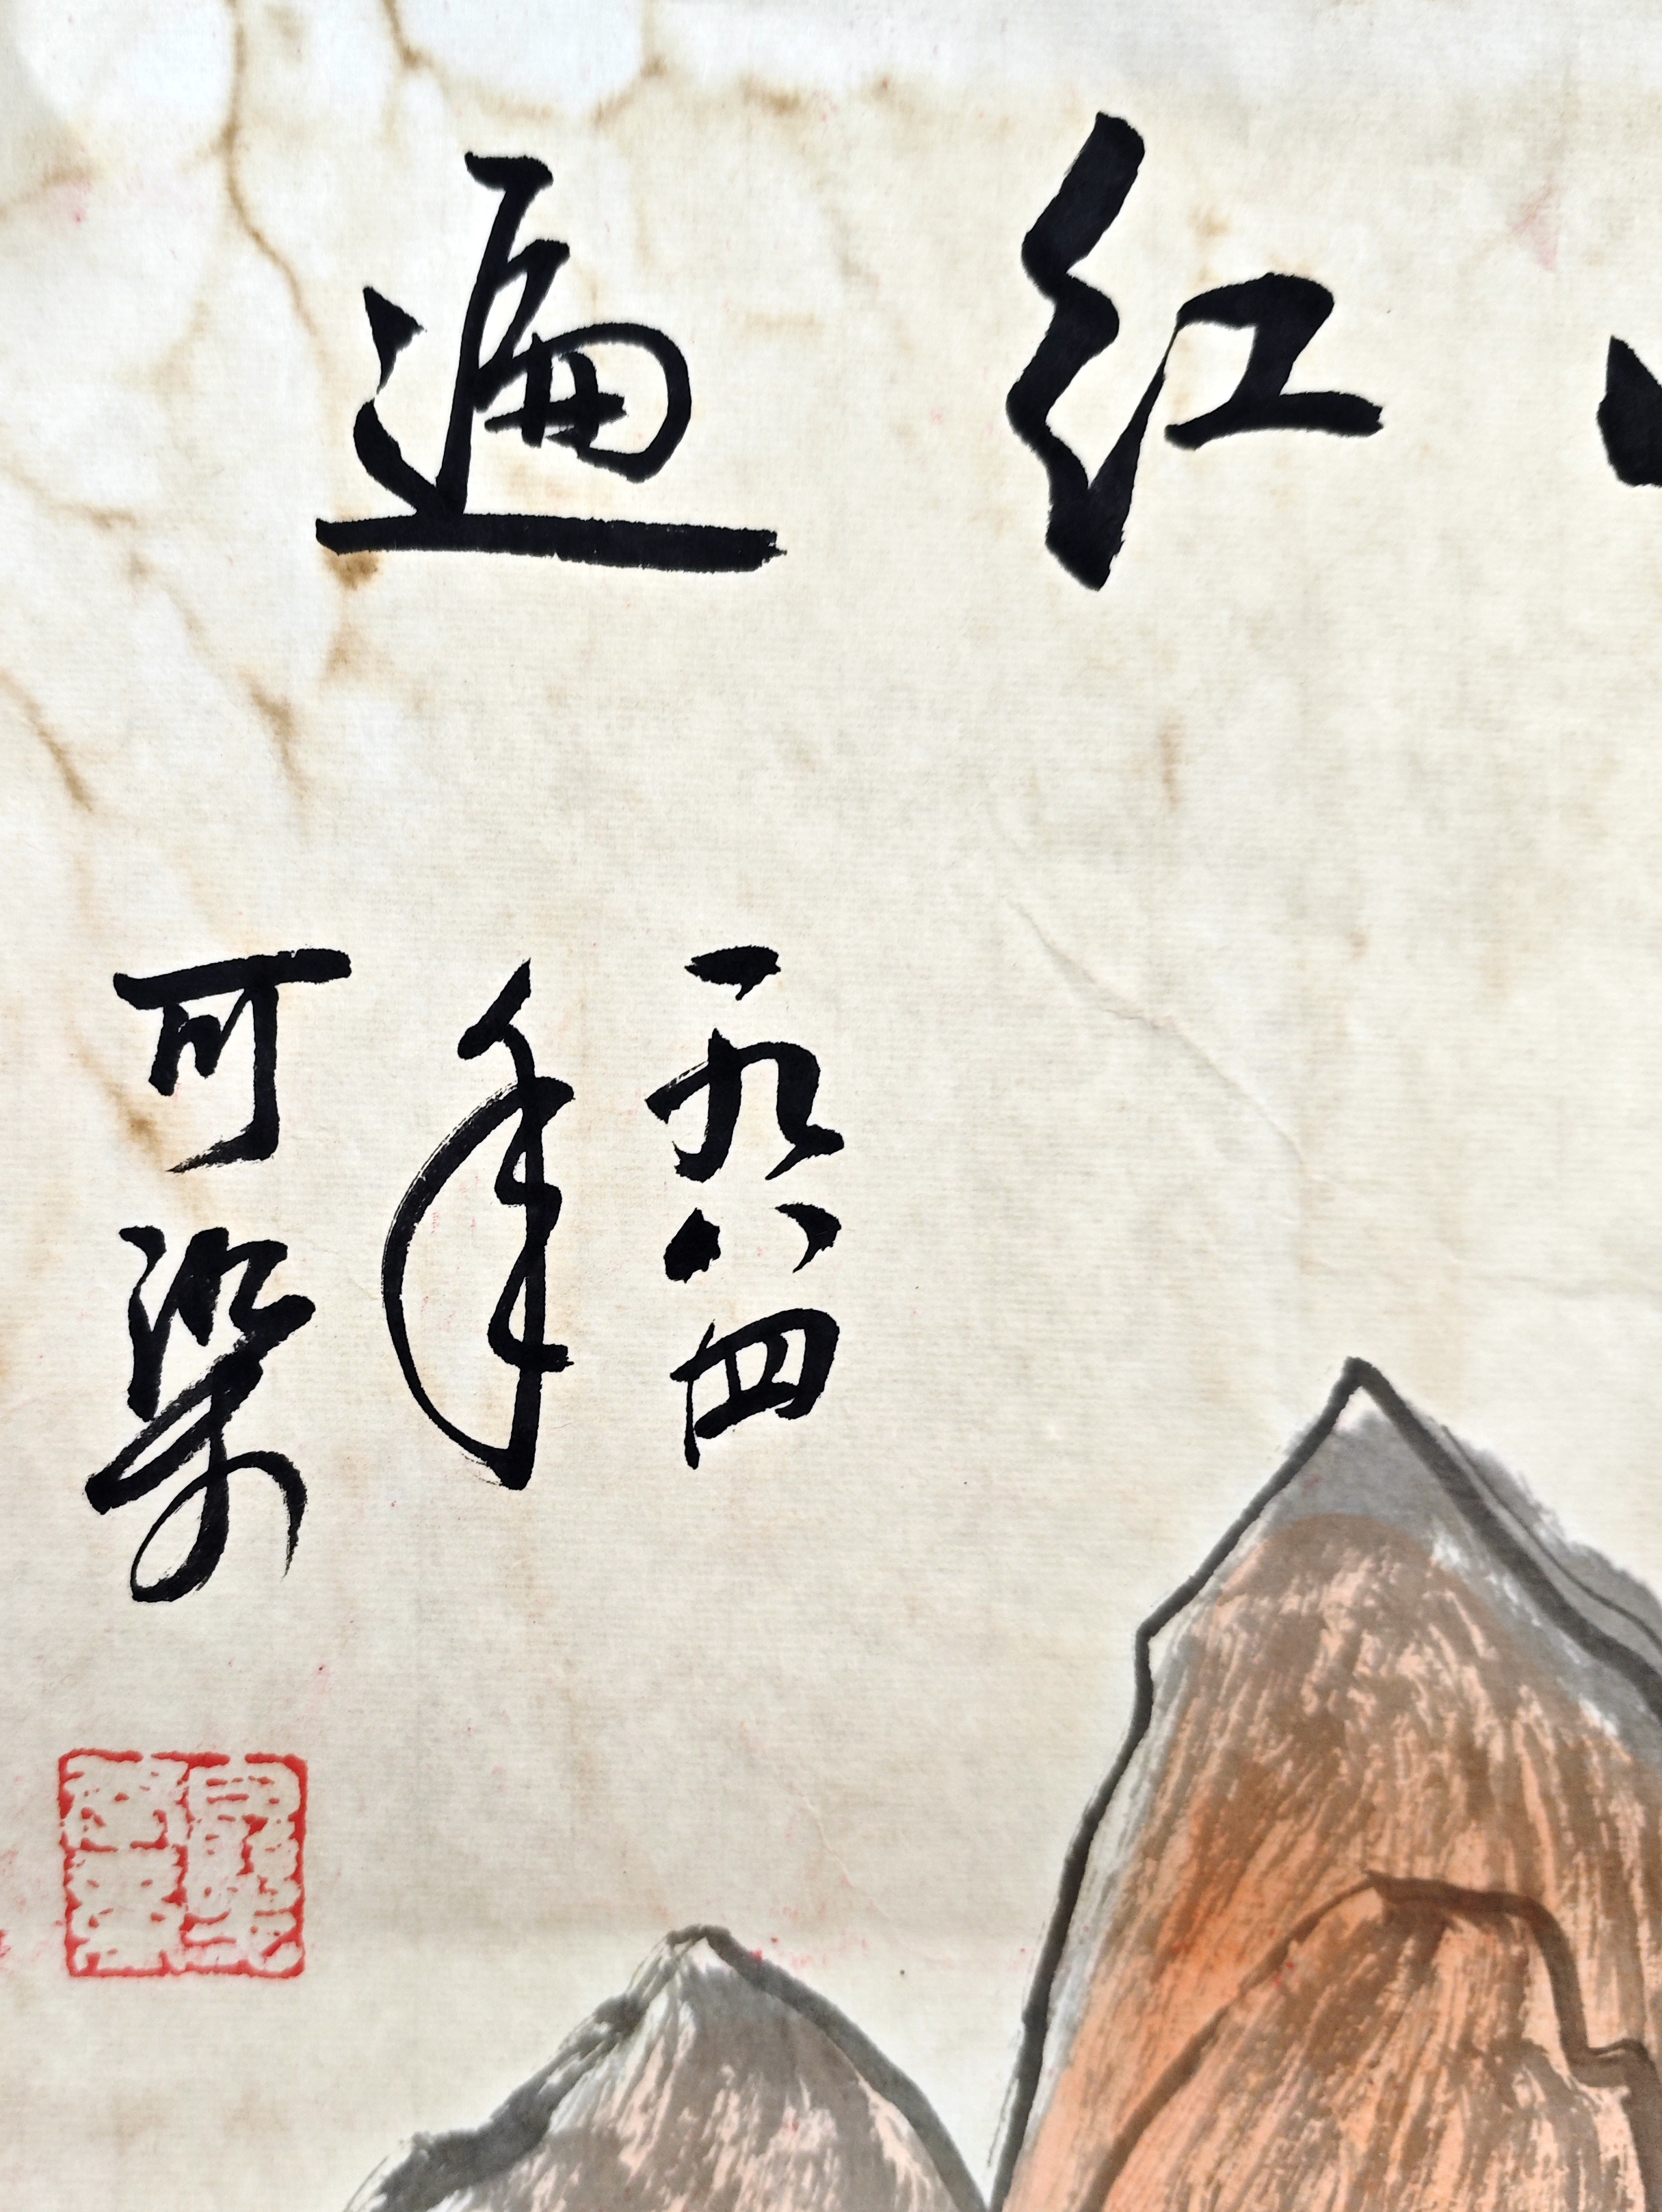 红遍
一九八四
年
可染